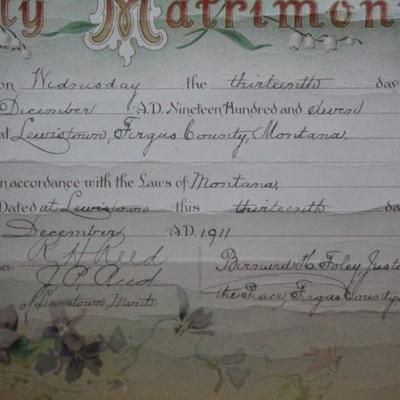 ly Matrimon
on Wednesday the thirteenth da
December A.D. Nineteen Hundred and eleven
at Lewistown, Fergus County, Montana,
n accordance with the Laws of Montana,
Dated at Lewistown this thirteenth da
December, A.D. 1911
R. H. Reed
J. P. Reed
of Lewistown, Mont.
Bernard H. Foley Juste
the Peace, Fergus County